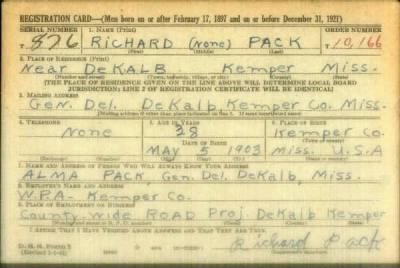 REGISTRATION CARD—(Men born on or after February 17, 1897 and on or before December 31, 1921)
SERIAL NUMBER 1. NAME (Print) ORDER NUMBER
T 876 RICHARD (None) PACK T 10,166
(First) (Middle) (Last)
2. PLACE OF RESIDENCE (Print)
Near DeKALB Kemper Miss.
(THE PLACE OF RESIDENCE GIVEN ON THE LINE ABOVE WILL DETERMINE LOCAL BOARD
JURISDICTION; LINE 2 OF REGISTRATION CERTIFICATE WILL BE IDENTICAL)
3. MAILING ADDRESS
Gen. Del. DeKalb, Kemper Co. Miss.
4. TELEPHONE 5. AGE IN YEARS 6. PLACE OF BIRTH
None 38 Kemper Co.
DATE OF BIRTH
MAY 5 1903 Miss. U.S.A
7. NAME AND ADDRESS OF PERSON WHO WILL ALWAYS KNOW YOUR ADDRESS
ALMA PACK Gen. Del. DeKalb, Miss.
8. EMPLOYER'S NAME AND ADDRESS
W.P.A- Kemper Co.
9. PLACE OF EMPLOYMENT OR BUSINESS
County-wide ROAD Proj. DeKalb Kemper
I AFFIRM THAT I HAVE VERIFIED ABOVE ANSWERS AND THAT THEY ARE TRUE.
Richard Pack